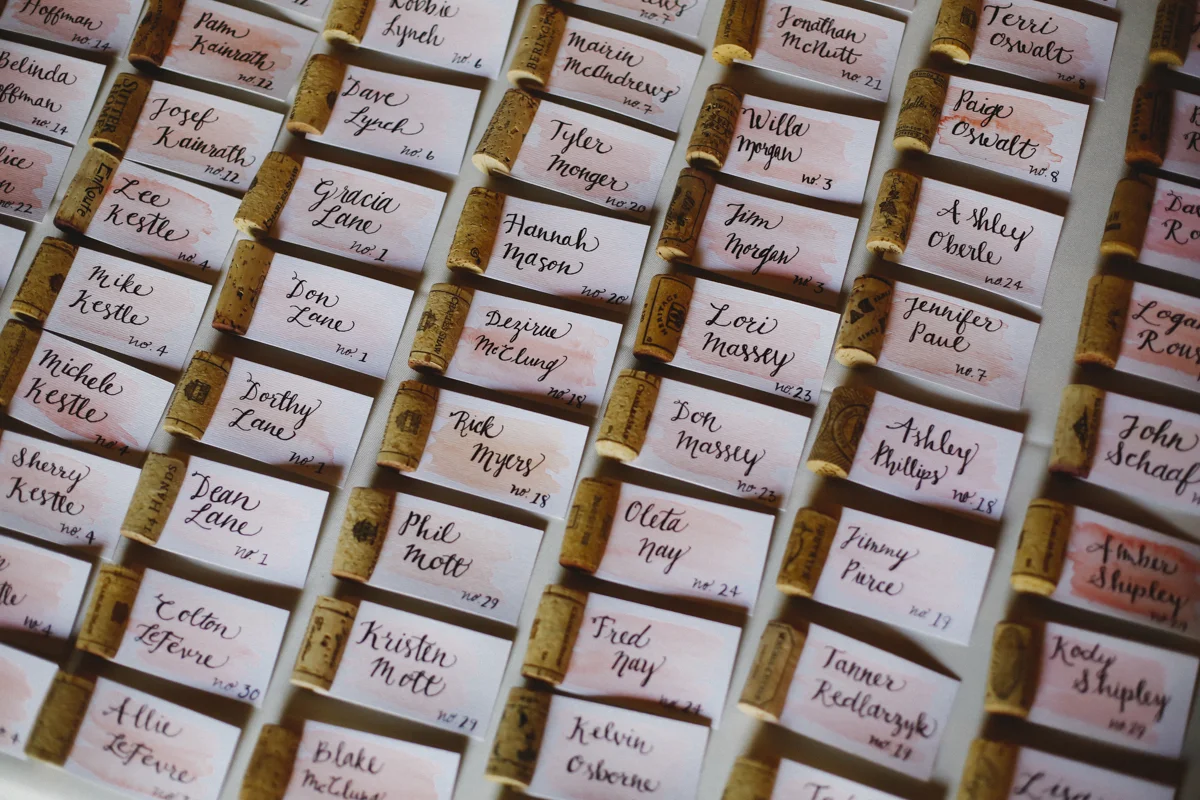 Hoffman
no. 14
Belinda
no. 14
no. 22
Pam
Kainrath
no. 22
Josef
Kainrath
no. 22
Lee
Kestle
no. 4
Mike
Kestle
no. 4
Michele
Kestle
no. 4
Sherry
Kestle
no. 4
no. 4
Robbie
Lynch
no. 6
Dave
Lynch
no. 6
Gracia
Lane
no. 1
Don
Lane
no. 1
Dorthy
Lane
no. 1
14 HANDS
Dean
Lane
no. 1
Colton
LeFevre
no. 30
Allie
LeFevre
no. 7
Mairin
McAndrews
no. 7
Tyler
Monger
no. 20
Hannah
Mason
no. 20
Dezirue
McClung
no. 18
Rick
Myers
no. 18
Phil
Mott
no. 29
Kristen
Mott
no. 29
Blake
McClung
Jonathan
McNutt
no. 21
Willa
Morgan
no. 3
Jim
Morgan
no. 3
Lori
Massey
no. 23
Don
Massey
no. 23
Oleta
Nay
no. 24
Fred
Nay
no. 24
Kelvin
Osborne
Terri
Oswalt
no. 8
Paige
Oswalt
no. 8
Ashley
Oberle
no. 24
Jennifer
Paul
no. 7
Ashley
Phillips
no. 18
Jimmy
Pierce
no. 19
Tanner
Redlarzyk
no. 19
John
Schaaf
Amber
Shipley
Kody
Shipley
no. 29